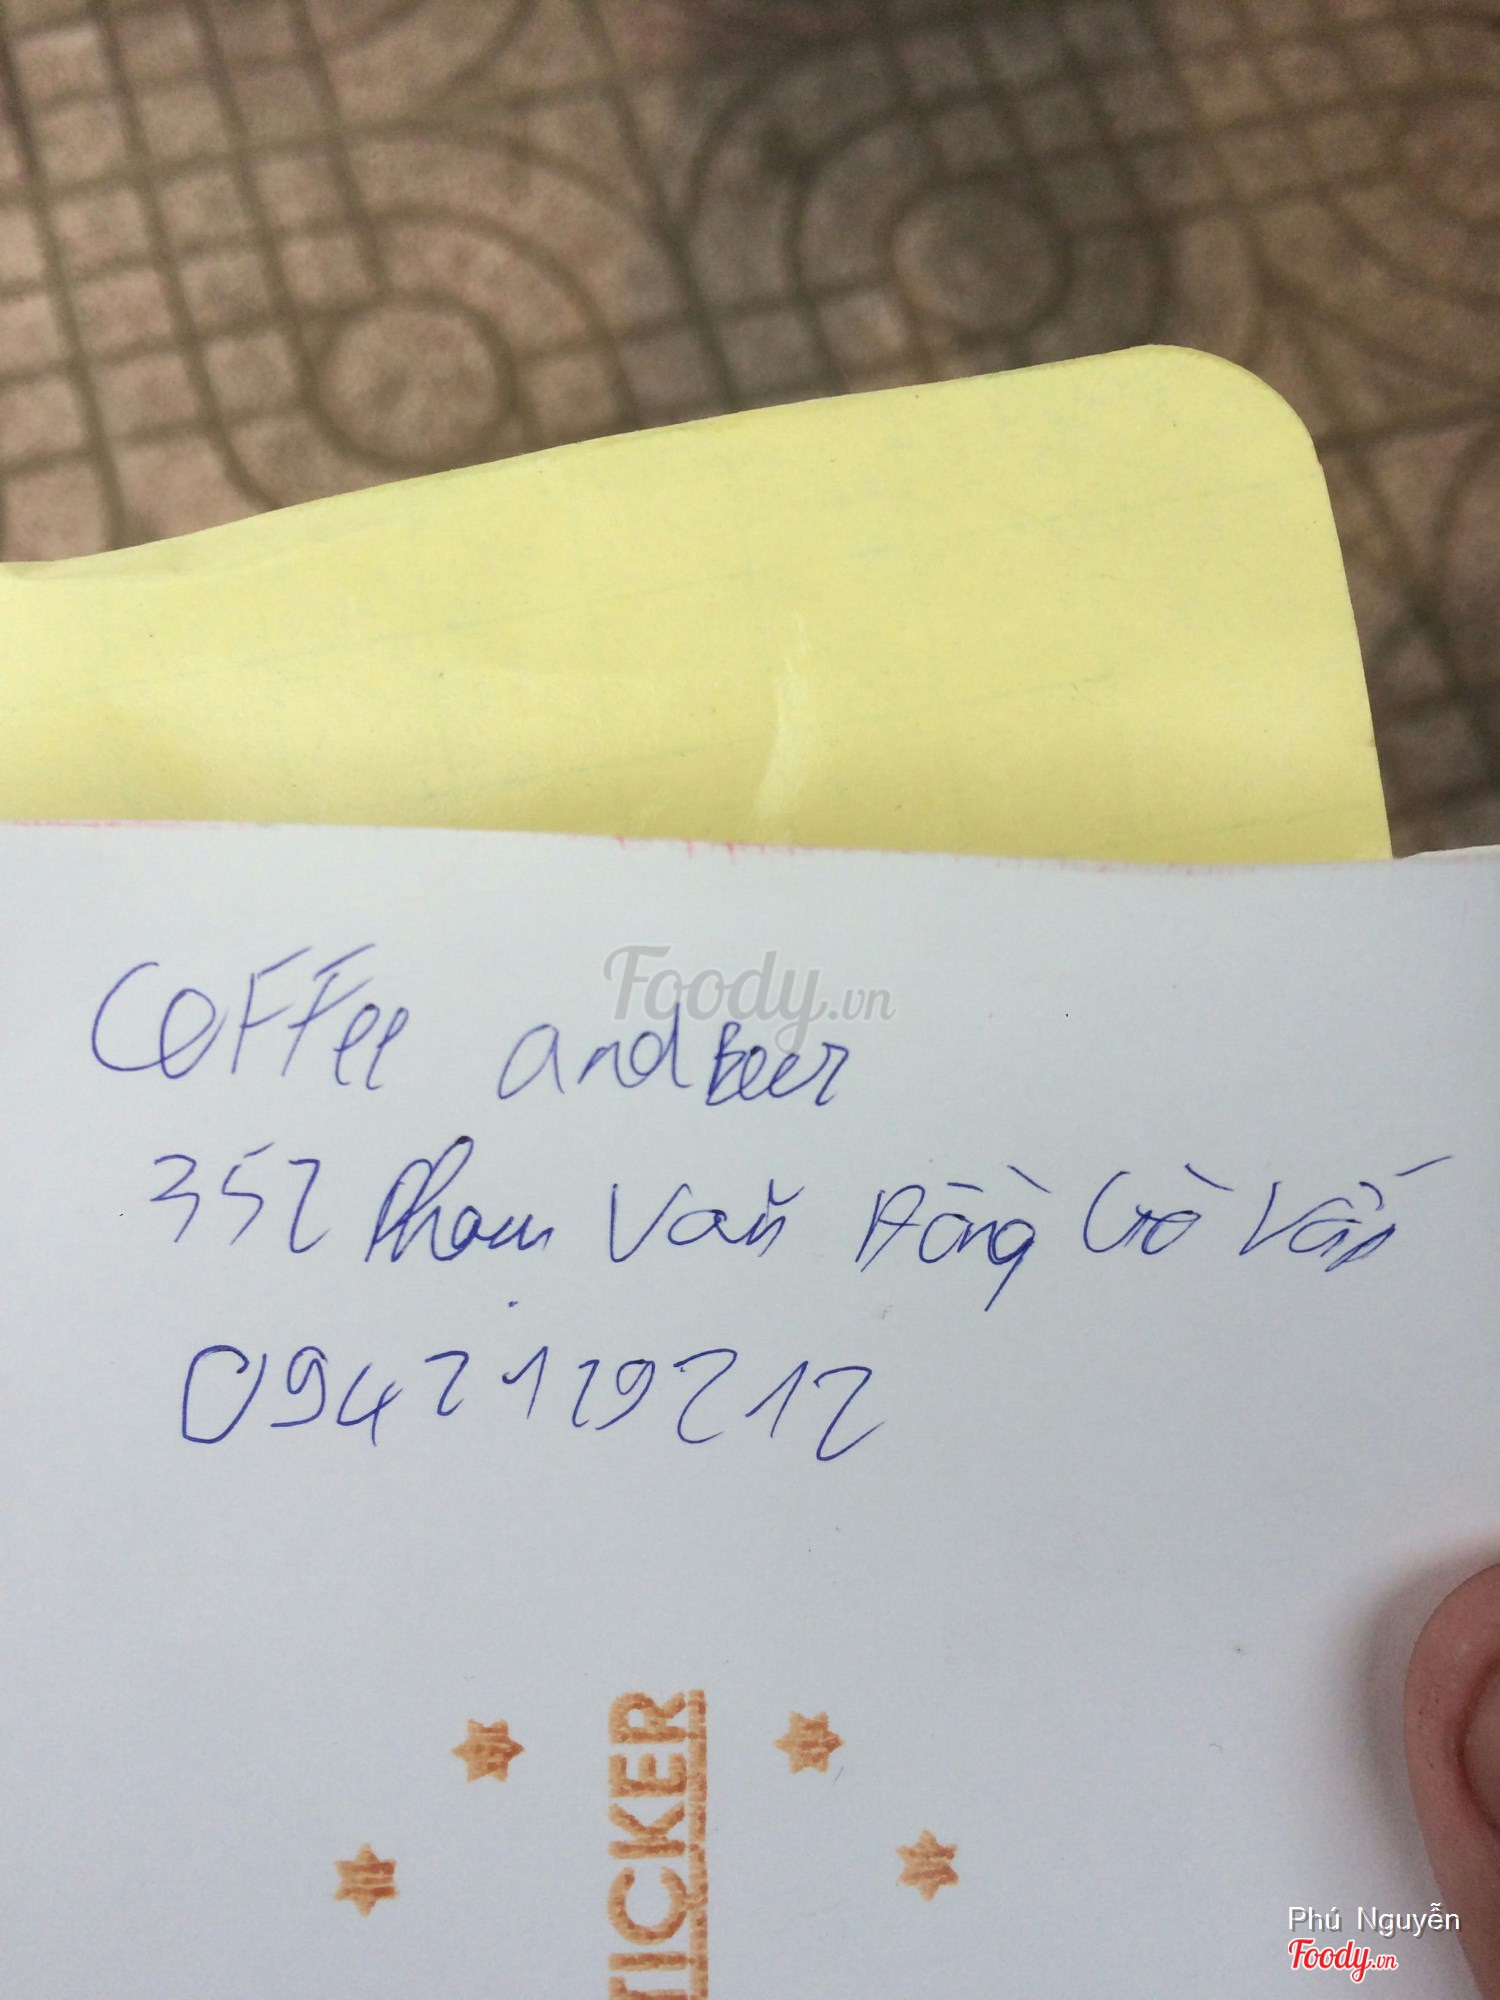 Foody.vn
Coffee and Beer
352 Phạm Văn Đồng Gò Vấp
0942129212
TICKER
Phú Nguyễn
Foody.vn